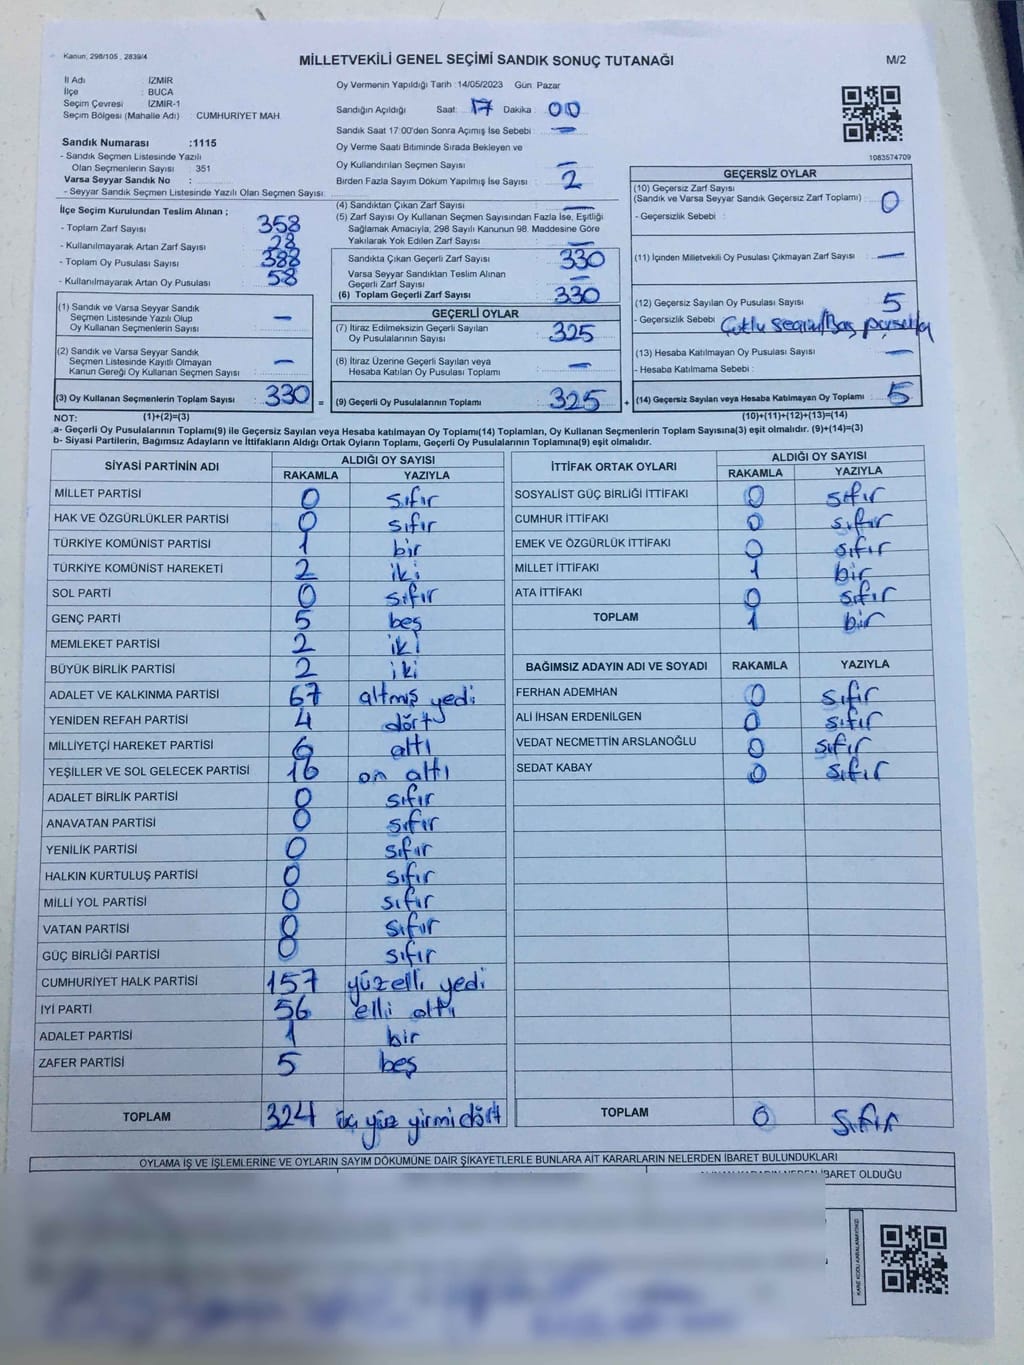 Kanun, 298/105 , 2839/4
MİLLETVEKİLİ GENEL SEÇİMİ SANDIK SONUÇ TUTANAĞI
M/2
İl Adı : İZMİR
İlçe : BUCA
Seçim Çevresi : İZMİR-1
Seçim Bölgesi (Mahalle Adı) : CUMHURİYET MAH.
Sandık Numarası :1115
- Sandık Seçmen Listesinde Yazılı
Olan Seçmenlerin Sayısı : 351
Varsa Seyyar Sandık No :
- Seyyar Sandık Seçmen Listesinde Yazılı Olan Seçmen Sayısı:
İlçe Seçim Kurulundan Teslim Alınan ;
- Toplam Zarf Sayısı : 358
- Kullanılmayarak Artan Zarf Sayısı : 28
- Toplam Oy Pusulası Sayısı : 388
- Kullanılmayarak Artan Oy Pusulası : 58
(1) Sandık ve Varsa Seyyar Sandık
Seçmen Listesinde Yazılı Olup
Oy Kullanan Seçmenlerin Sayısı : —
(2) Sandık ve Varsa Seyyar Sandık
Seçmen Listesinde Kayıtlı Olmayan
Kanun Gereği Oy Kullanan Seçmen Sayısı : —
(3) Oy Kullanan Seçmenlerin Toplam Sayısı : 330 =
(1)+(2)=(3)
Oy Vermenin Yapıldığı Tarih :14/05/2023 Gün: Pazar
Sandığın Açıldığı Saat: 17 Dakika : 00
Sandık Saat 17:00'den Sonra Açımış İse Sebebi : —
Oy Verme Saati Bitiminde Sırada Bekleyen ve
Oy Kullandırılan Seçmen Sayısı : —
Birden Fazla Sayım Döküm Yapılmış İse Sayısı : 2
(4) Sandıktan Çıkan Zarf Sayısı : —
(5) Zarf Sayısı Oy Kullanan Seçmen Sayısından Fazla İse, Eşitliği
Sağlamak Amacıyla, 298 Sayılı Kanunun 98. Maddesine Göre
Yakılarak Yok Edilen Zarf Sayısı : —
Sandıkta Çıkan Geçerli Zarf Sayısı : 330
Varsa Seyyar Sandıktan Teslim Alınan
Geçerli Zarf Sayısı : —
(6) Toplam Geçerli Zarf Sayısı : 330
GEÇERLİ OYLAR
(7) İtiraz Edilmeksizin Geçerli Sayılan
Oy Pusulalarının Sayısı : 325
(8) İtiraz Üzerine Geçerli Sayılan veya
Hesaba Katılan Oy Pusulası Toplamı : —
(9) Geçerli Oy Pusulalarının Toplamı : 325 +
1083574709
GEÇERSİZ OYLAR
(10) Geçersiz Zarf Sayısı
(Sandık ve Varsa Seyyar Sandık Geçersiz Zarf Toplamı) : 0
- Geçersizlik Sebebi :
(11) İçinden Milletvekili Oy Pusulası Çıkmayan Zarf Sayısı : —
(12) Geçersiz Sayılan Oy Pusulası Sayısı : 5
- Geçersizlik Sebebi :
(13) Hesaba Katılmayan Oy Pusulası Sayısı : —
- Hesaba Katılmama Sebebi :
(14) Geçersiz Sayılan veya Hesaba Katılmayan Oy Toplamı : 5
(10)+(11)+(12)+(13)=(14)
NOT:
a- Geçerli Oy Pusulalarının Toplamı(9) ile Geçersiz Sayılan veya Hesaba katılmayan Oy Toplamı(14) Toplamları, Oy Kullanan Seçmenlerin Toplam Sayısına(3) eşit olmalıdır. (9)+(14)=(3)
b- Siyasi Partilerin, Bağımsız Adayların ve İttifakların Aldığı Ortak Oyların Toplamı, Geçerli Oy Pusulalarının Toplamına(9) eşit olmalıdır.
SİYASİ PARTİNİN ADI
ALDIĞI OY SAYISI
RAKAMLA YAZIYLA
MİLLET PARTİSİ 0 sıfır
HAK VE ÖZGÜRLÜKLER PARTİSİ 0 sıfır
TÜRKİYE KOMÜNİST PARTİSİ 1 bir
TÜRKİYE KOMÜNİST HAREKETİ 2 iki
SOL PARTİ 0 sıfır
GENÇ PARTİ 5 beş
MEMLEKET PARTİSİ 2 iki
BÜYÜK BİRLİK PARTİSİ 2 iki
ADALET VE KALKINMA PARTİSİ 67 altmış yedi
YENİDEN REFAH PARTİSİ 4 dört
MİLLİYETÇİ HAREKET PARTİSİ 6 altı
YEŞİLLER VE SOL GELECEK PARTİSİ 16 on altı
ADALET BİRLİK PARTİSİ 0 sıfır
ANAVATAN PARTİSİ 0 sıfır
YENİLİK PARTİSİ 0 sıfır
HALKIN KURTULUŞ PARTİSİ 0 sıfır
MİLLİ YOL PARTİSİ 0 sıfır
VATAN PARTİSİ 0 sıfır
GÜÇ BİRLİĞİ PARTİSİ 0 sıfır
CUMHURİYET HALK PARTİSİ 157 yüzelli yedi
İYİ PARTİ 56 elli altı
ADALET PARTİSİ 1 bir
ZAFER PARTİSİ 5 beş
TOPLAM 324 üç yüz yirmi dört
İTTİFAK ORTAK OYLARI
ALDIĞI OY SAYISI
RAKAMLA YAZIYLA
SOSYALİST GÜÇ BİRLİĞİ İTTİFAKI 0 sıfır
CUMHUR İTTİFAKI 0 sıfır
EMEK VE ÖZGÜRLÜK İTTİFAKI 0 sıfır
MİLLET İTTİFAKI 1 bir
ATA İTTİFAKI 0 sıfır
TOPLAM 1 bir
BAĞIMSIZ ADAYIN ADI VE SOYADI RAKAMLA YAZIYLA
FERHAN ADEMHAN 0 sıfır
ALİ İHSAN ERDENİLGEN 0 sıfır
VEDAT NECMETTİN ARSLANOĞLU 0 sıfır
SEDAT KABAY 0 sıfır
TOPLAM 0 sıfır
OYLAMA İŞ VE İŞLEMLERİNE VE OYLARIN SAYIM DÖKÜMÜNE DAİR ŞİKAYETLERLE BUNLARA AİT KARARLARIN NELERDEN İBARET BULUNDUKLARI
İBARET OLDUĞU